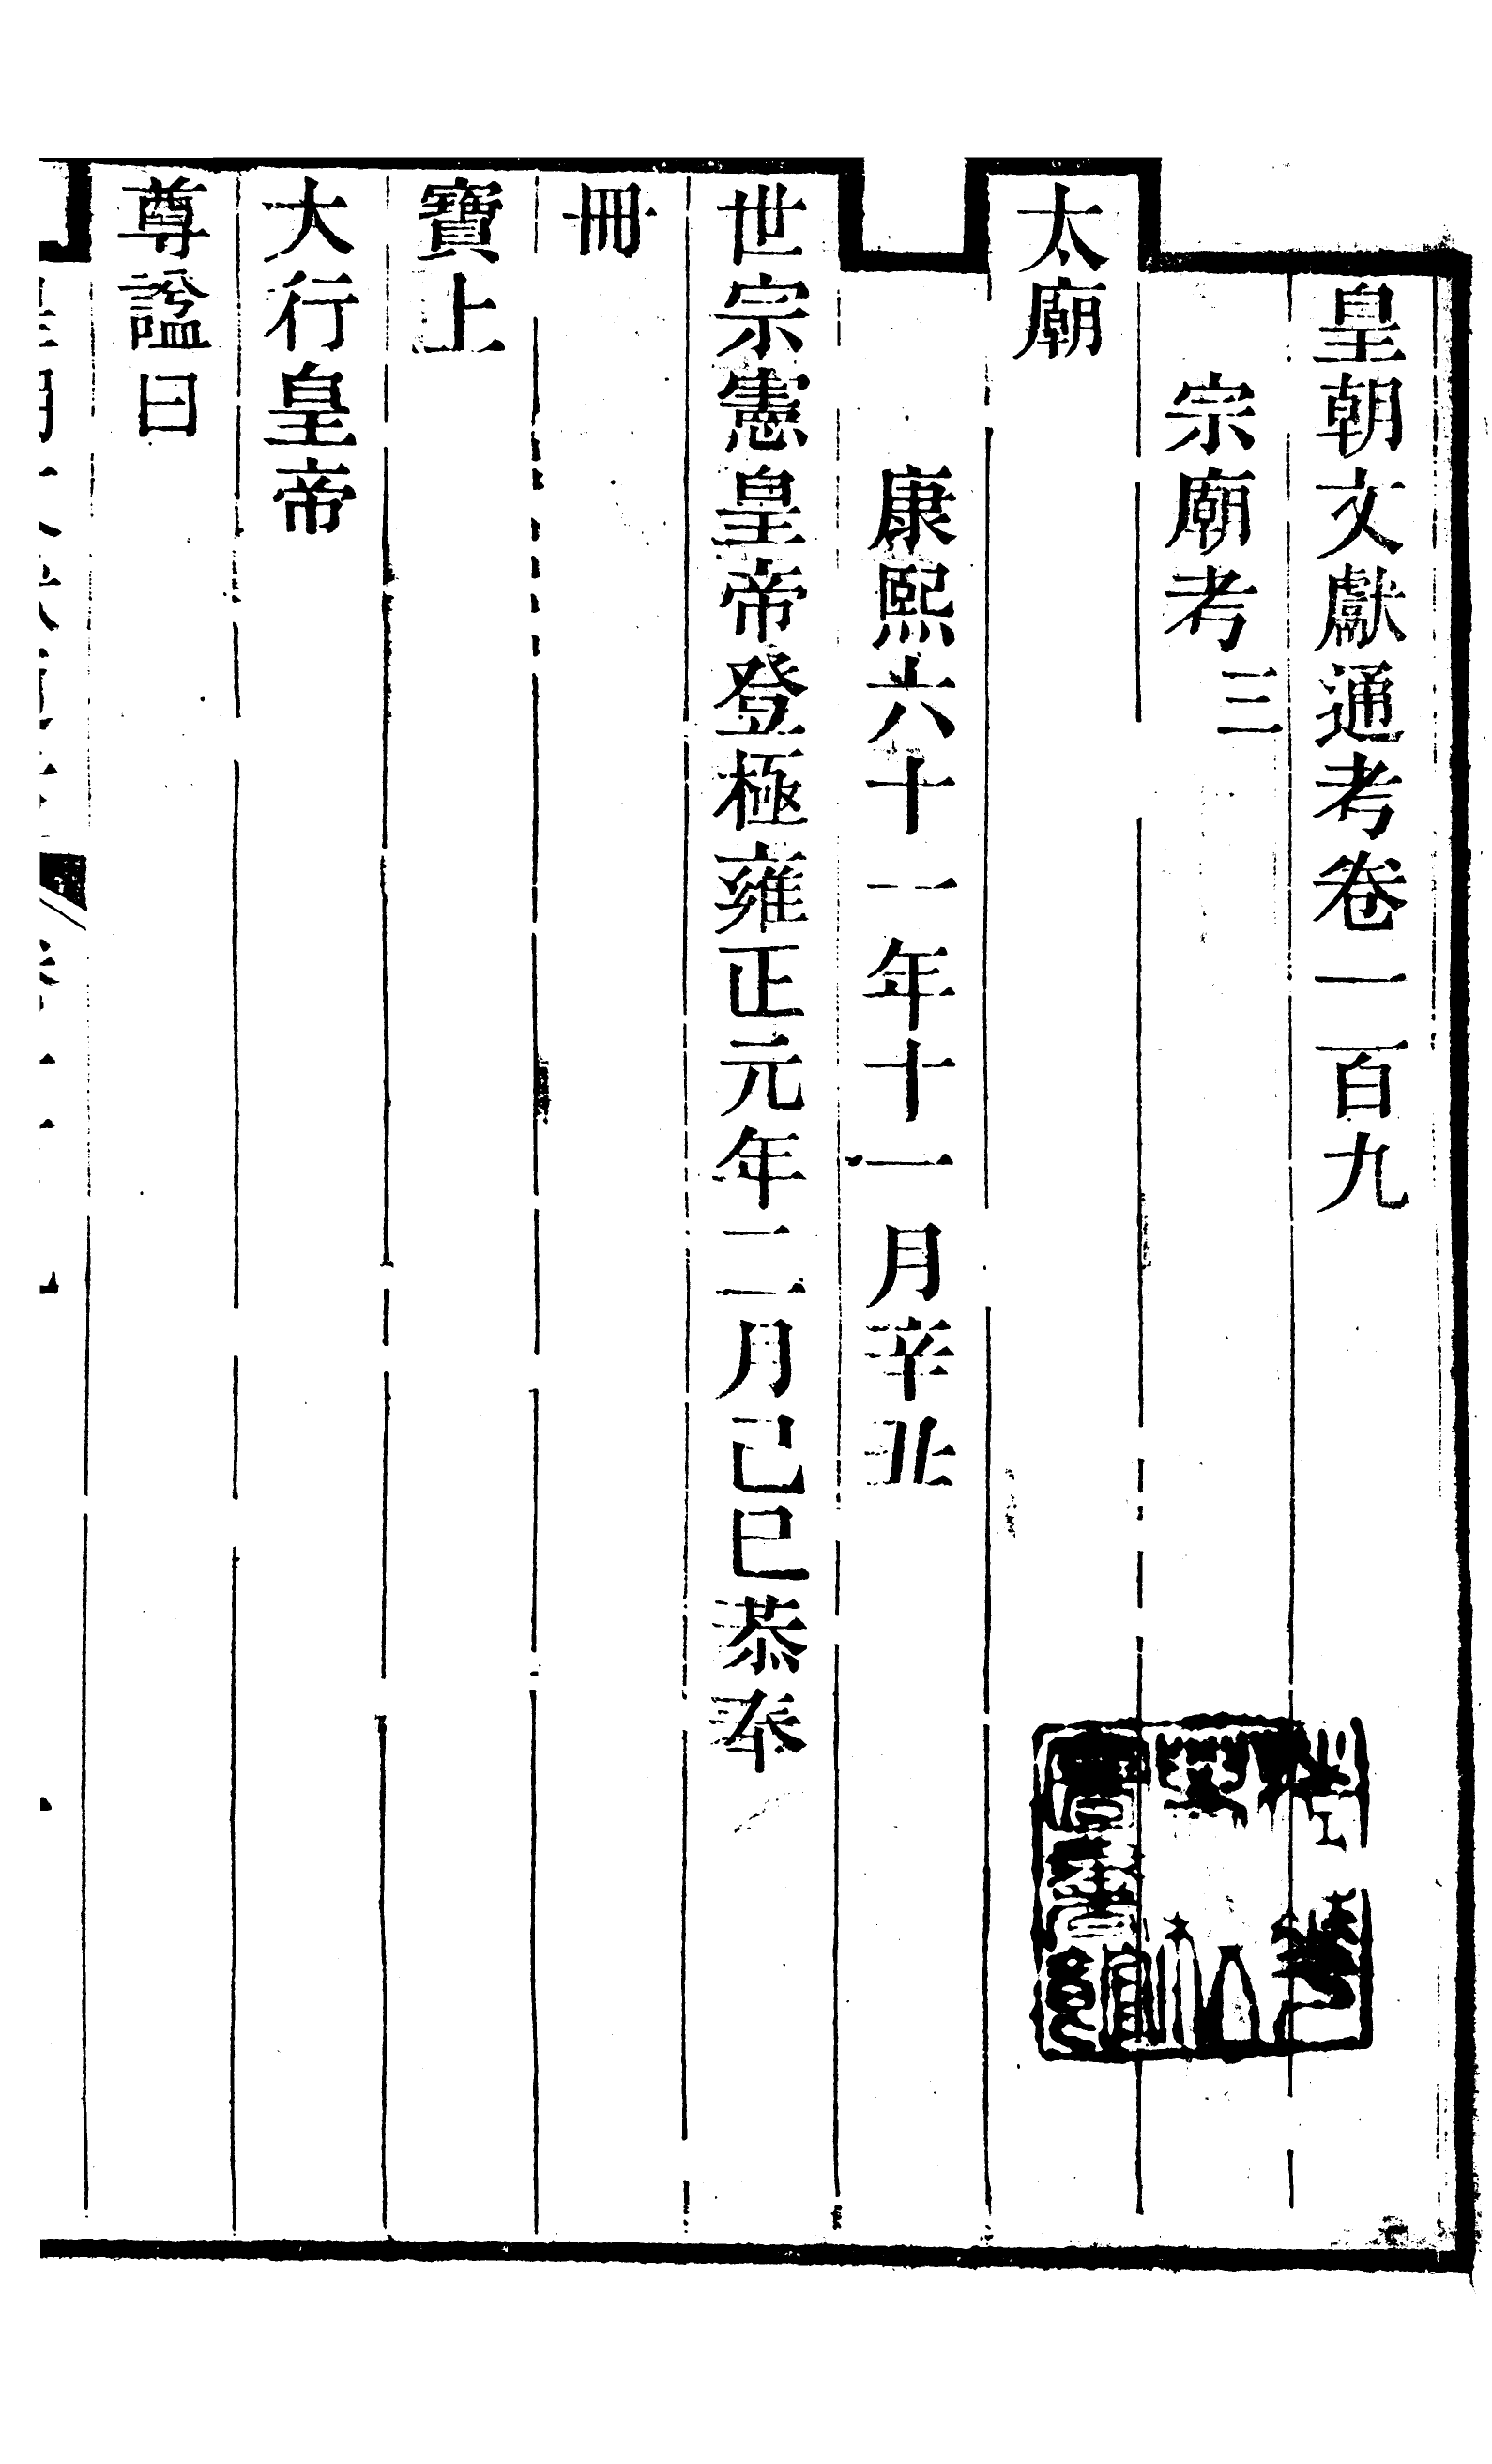 皇朝文獻通考卷一百九
宗廟考三
太廟
康熙六十一年十一月辛丑
世宗憲皇帝登極雍正元年二月己巳恭奉
冊
寶上
大行皇帝
尊諡曰